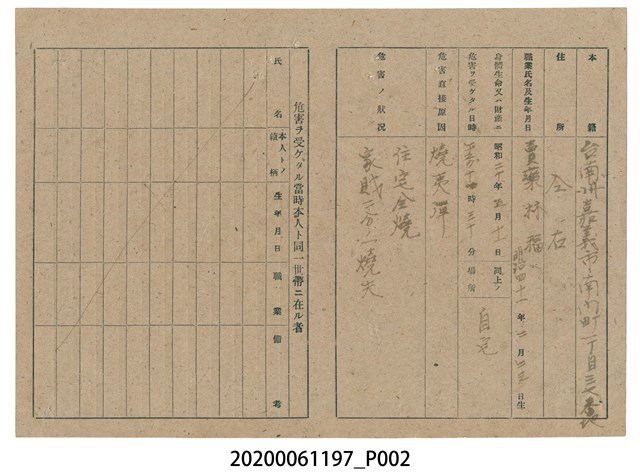 本籍 台南州嘉義市南門町一丁目三七番地
住所 仝右
職業氏名及生年月日 賣藥 林福 明治四十一年十二月二三日生
身體生命又ハ財產ニ危害ヲ受ケタル日時 昭和二十年 月十一日 時三十分
同上ノ場所 自宅
危害直接原因 燒夷彈
危害ノ狀況 住宅全燒
家財二分ノ一燒失
危害ヲ受ケタル當時本人ト同一世帶ニ在ル者
氏名 本人トノ續柄 生年月日 職業 備考
20200061197_P002